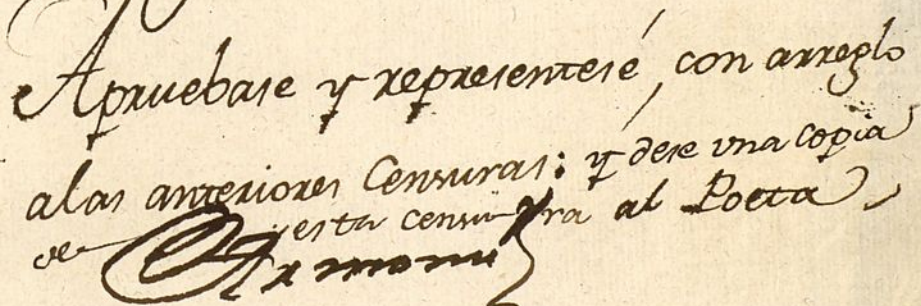 Apruebase y representesé, con arreglo
alas anteriores Censuras: y dese una copia
de esta censura al Poeta
Armona